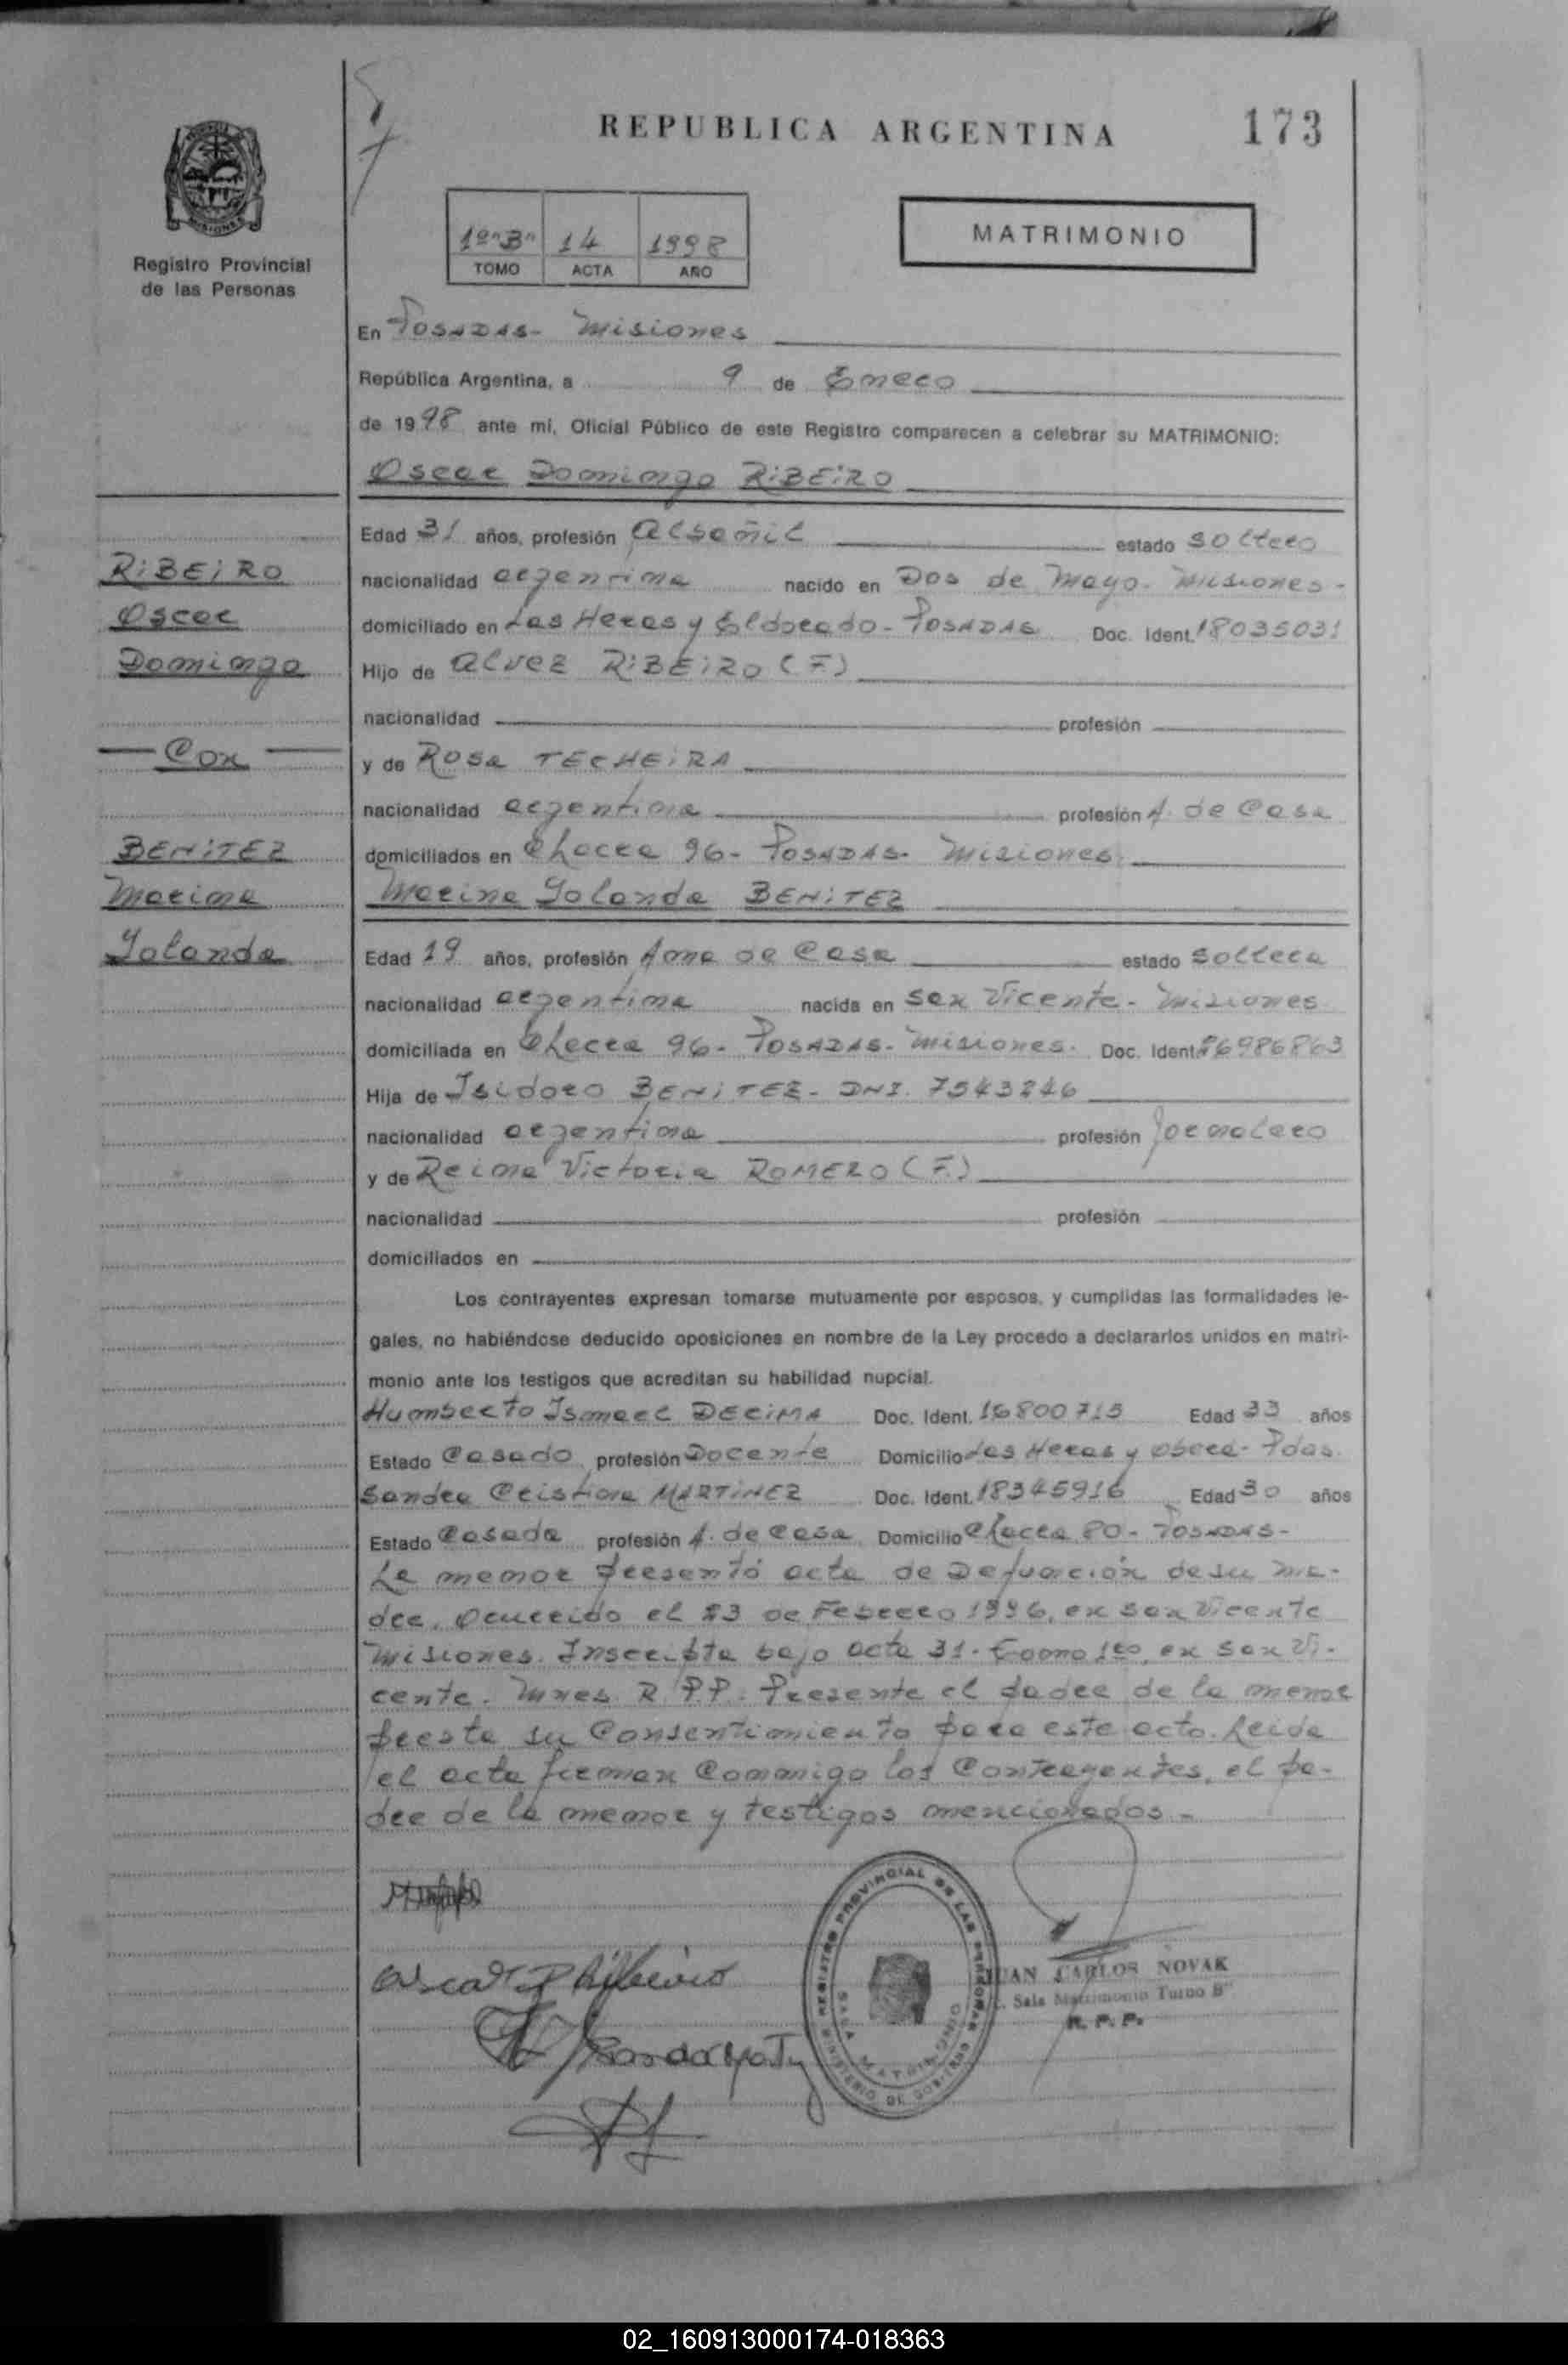 REPUBLICA ARGENTINA
173
MISIONES
Registro Provincial
de las Personas
1º"B" 14 1998
TOMO ACTA AÑO
MATRIMONIO
En Posadas - Misiones
República Argentina, a 9 de Enero
de 1998 ante mí, Oficial Público de este Registro comparecen a celebrar su MATRIMONIO:
Oscar Domingo RIBEIRO
RIBEIRO
Oscar
Domingo
Con
BENITEZ
Marina
Yolanda
Edad 31 años, profesión Albañil estado soltero
nacionalidad argentina nacido en Dos de Mayo - Misiones -
domiciliado en Las Heras y Eldorado - Posadas Doc. Ident. 18035031
Hijo de Alvez RIBEIRO (F)
nacionalidad profesión
y de Rosa TECHEIRA
nacionalidad argentina profesión A. de Casa
domiciliados en Chacra 96 - Posadas - Misiones
Marina Yolanda BENITEZ
Edad 19 años, profesión Ama de Casa estado soltera
nacionalidad argentina nacida en San Vicente - Misiones
domiciliada en Chacra 96 - Posadas - Misiones - Doc. Ident. 26986863
Hija de Isidoro BENITEZ - DNI. 7543246
nacionalidad argentina profesión Jornalero
y de Reina Victoria ROMERO (F.)
nacionalidad profesión
domiciliados en
Los contrayentes expresan tomarse mutuamente por esposos, y cumplidas las formalidades le-
gales, no habiéndose deducido oposiciones en nombre de la Ley procedo a declararlos unidos en matri-
monio ante los testigos que acreditan su habilidad nupcial.
Humberto Ismael DECIMA Doc. Ident. 16800715 Edad 33 años
Estado Casado profesión Docente Domicilio Las Heras y Pdas.
Sandra Cristina MARTINEZ Doc. Ident. 18345916 Edad 30 años
Estado Casada profesión A. de Casa Domicilio Chacra 80 - Posadas -
La menor presentó acta de Defunción de su ma-
dre, ocurrido el 23 de Febrero 1996, en San Vicente
Misiones. Inscripta bajo acta 31 - Tomo 1ro, en San Vi-
cente - Mnes R.P.P. Presente el padre de la menor
presta su Consentimiento para este acto. Leída
el acta firman Conmigo los Contrayentes, el pa-
dre de la menor y testigos mencionados -
Oscar D Ribeiro
REGISTRO PROVINCIAL DE LAS PERSONAS
MINISTERIO DE GOBIERNO
SALA MATRIMONIO
JUAN CARLOS NOVAK
Sala Matrimonio Turno B"
R. P. P.
02_160913000174-018363